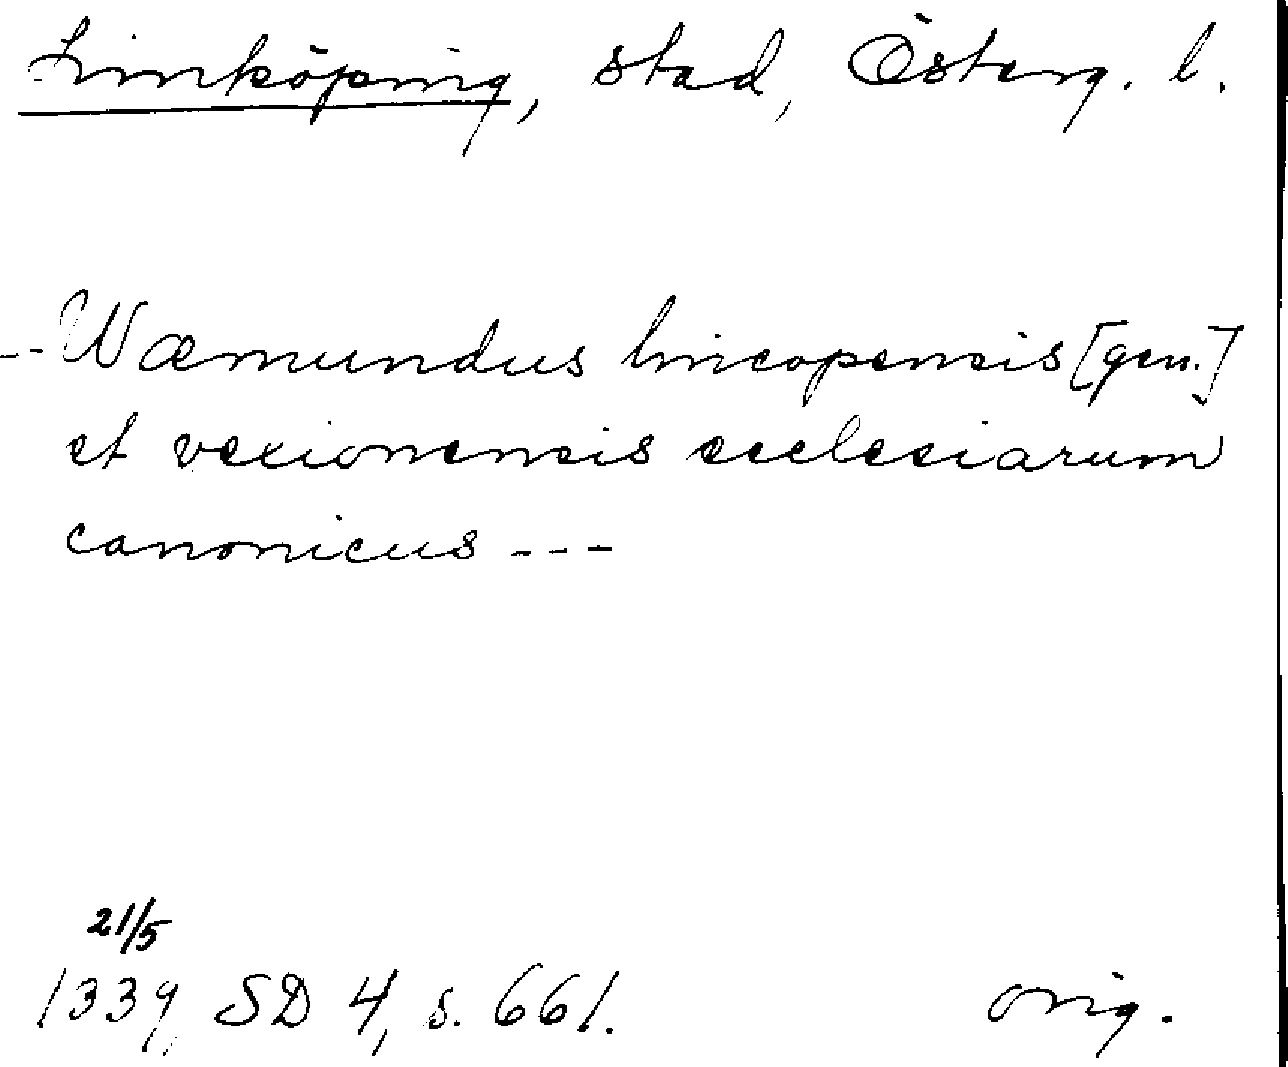 Linköping, stad, Österg. l.
--Wæmundus lincopensis [gen.]
et vexionensis ecclesiarum
canonicus ---
21/5
1339, SD 4, s. 661.
orig.